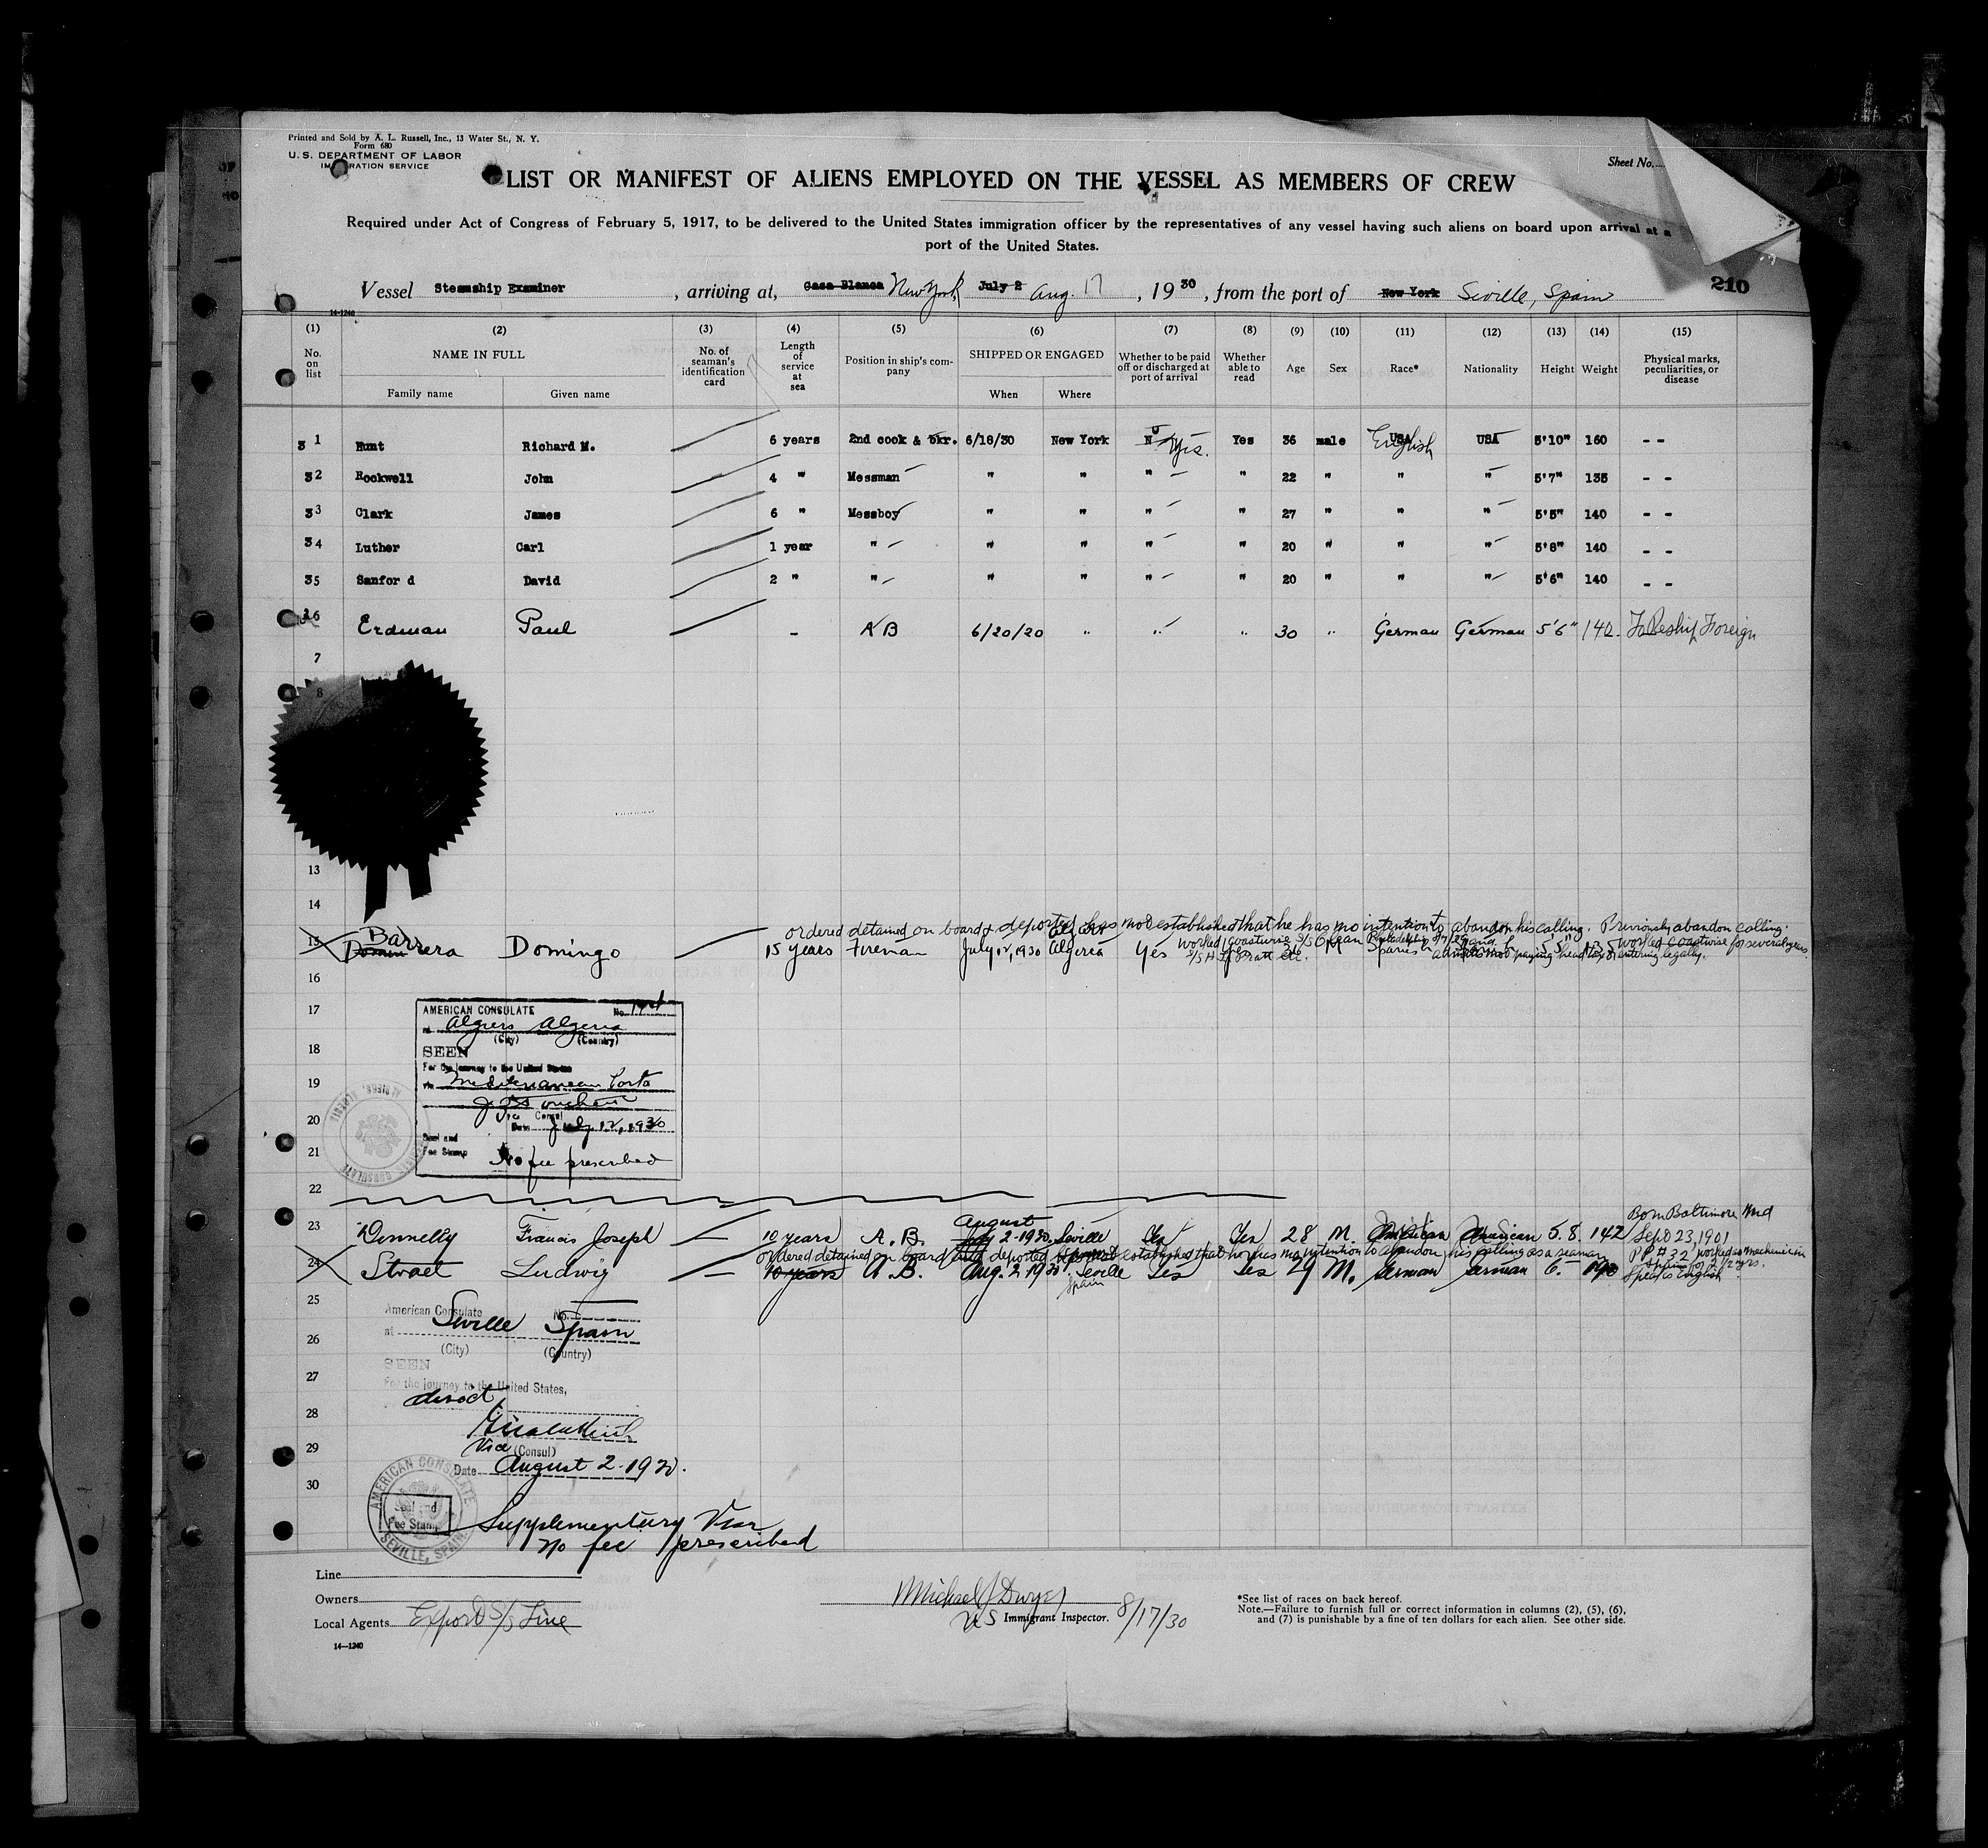 Printed and Sold by A. L. Russell, Inc., 13 Water St., N. Y.
Form 680
U. S. DEPARTMENT OF LABOR
IMMIGRATION SERVICE
Sheet No.
LIST OR MANIFEST OF ALIENS EMPLOYED ON THE VESSEL AS MEMBERS OF CREW
Required under Act of Congress of February 5, 1917, to be delivered to the United States immigration officer by the representatives of any vessel having such aliens on board upon arrival at a
port of the United States.
Vessel Steamship Examiner, arriving at, Casa Blanca New York July 2 Aug. 17, 1930, from the port of New York Seville, Spain
210
14-1240
(1) (2) (3) (4) (5) (6) (7) (8) (9) (10) (11) (12) (13) (14) (15)
No. on list NAME IN FULL Family name Given name No. of seaman's identification card Length of service at sea Position in ship's company SHIPPED OR ENGAGED When Where Whether to be paid off or discharged at port of arrival Whether able to read Age Sex Race* Nationality Height Weight Physical marks, peculiarities, or disease
31 Hunt Richard M. 6 years 2nd cook & bkr. 6/18/30 New York No Yes. Yes 36 male USA English USA 5'10" 160 - -
32 Rockwell John 4 " Messman " " " " 22 " " " 5'7" 135 - -
33 Clark James 6 " Messboy " " " " 27 " " " 5'5" 140 - -
34 Luther Carl 1 year " " " " " 20 " " " 5'8" 140 - -
35 Sanfor d David 2 " " " " " " 20 " " " 5'6" 140 - -
36 Erdman Paul - AB 6/20/20 " " " 30 " German German 5'6" 140. To Reship Foreign
7
8
13
14
ordered detained on board & deported has not established that he has no intention to abandon his calling. Previously abandon calling.
15 Domin Barrera Domingo 15 years Fireman July 12, 1930 Algeria Yes worked coastwise S/S
worked coastwise for several years.
admits not paying head tax or entering legally.
16
17
18
19
20
21
22
AMERICAN CONSULATE No.
at Algiers Algeria
(City) (Country)
SEEN
For the journey to the United States
via Mediterranean Ports
Vice Consul
Date July 12, 1930
Seal and
Fee Stamp No fee prescribed
23 Donnelly Francis Joseph 10 years A.B. August July 2-1930 Seville Yes Yes 28 M. American American 5.8. 142 Born Baltimore Md Sep 23, 1901
ordered detained on board and deported established that he has no intention to abandon his calling as a seaman
24 Stroet Ludwig 10 years A.B. Aug. 2 1930 Seville Spain Yes Yes 29 M. German German 6. 190 PP #32 worked as mechanic in Spain for 2 1/2 yrs. Speaks English
25
26
27
28
29
30
American Consulate No.
at Seville Spain
(City) (Country)
SEEN
For the journey to the United States,
direct
Vice (Consul)
Date August 2-1930.
AMERICAN CONSULATE
SEVILLE, SPAIN
Seal and
Fee Stamp
Supplementary Visa
no fee prescribed
Line
Owners
Local Agents Export S/S Line
14-1240
Michael J Dwyer
US Immigrant Inspector. 8/17/30
*See list of races on back hereof.
Note.—Failure to furnish full or correct information in columns (2), (5), (6),
and (7) is punishable by a fine of ten dollars for each alien. See other side.